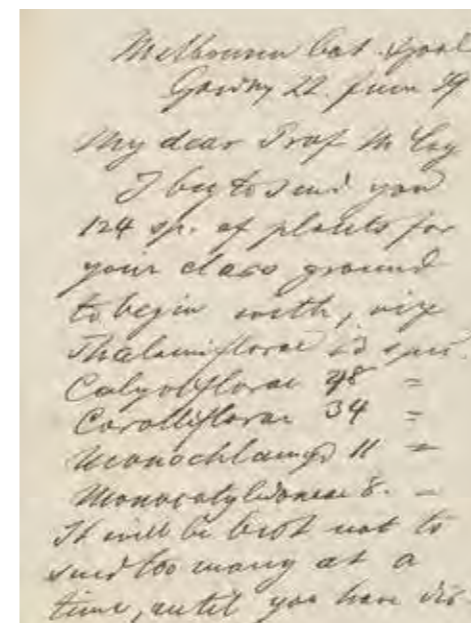 Melbourne Bot. & Zool
Gardn 22. June 59
My dear Prof M Coy
I beg to send you
124 sp. of plants for
your class ground
to begin with, viz
Thalamiflorae spec.
Calyciflorae 48 =
Corolliflorae 34 =
Monochlamyd 11 =
Monocotyledoneae 8. =
It will be best not to
send too many at a
time, until you have dis